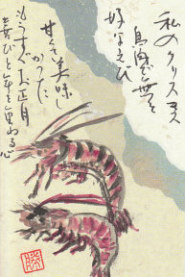 私のクリスマス
鳥肉だ無く
好きなえび
甘くて美味
かった
もうすぐお正月
喜びと年を重ねる心